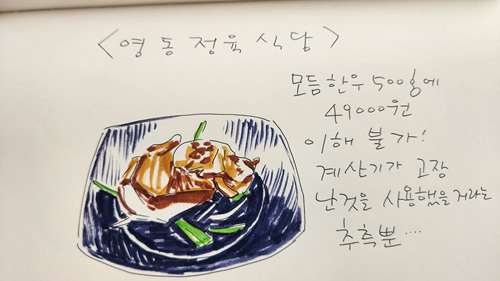 <영동정육식당>
모듬한우 500일에
49000원
이해 불가!
계산기가 고장
난것을 사용했을거라는
추측뿐....